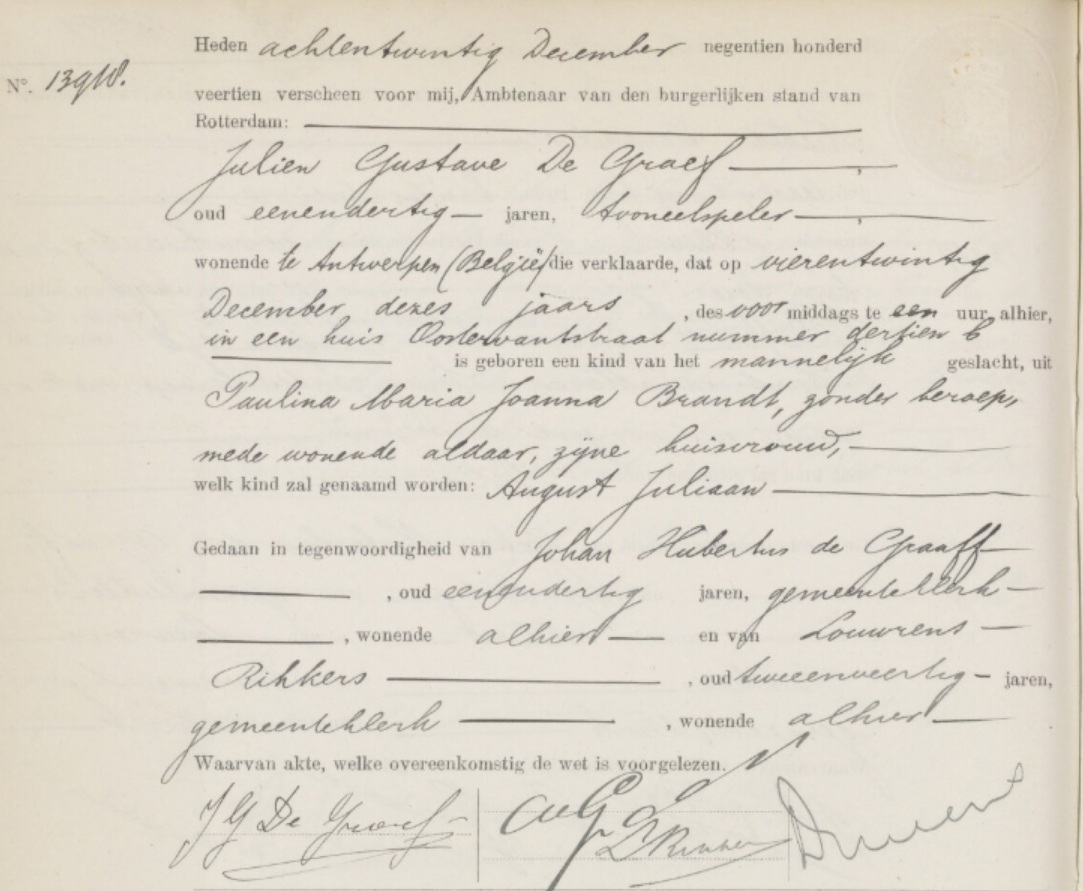 Heden achtentwintig December negentien honderd
N°.
veertien verscheen voor mij, Ambtenaar van den burgerlijken stand van
Rotterdam:
Julien Gustave De Graef,
oud eenendertig jaren, tooneelspeler,
wonende te Antwerpen (België) die verklaarde, dat op vierentwintig
December dezes jaars, des voormiddags te een uur, alhier,
in een huis Oostervantstraat nummer dertien b
is geboren een kind van het mannelijk geslacht, uit
Paulina Maria Joanna Brandt, zonder beroep,
mede wonende aldaar, zijne huisvrouw,
welk kind zal genaamd worden: August Juliaan
Gedaan in tegenwoordigheid van Johan Hubertus de Graaff
, oud eenendertig jaren, gemeenteklerk
, wonende alhier en van Louwrens
Rikkers, oud tweeenveertig jaren,
gemeenteklerk, wonende alhier
Waarvan akte, welke overeenkomstig de wet is voorgelezen.
J G De Graef